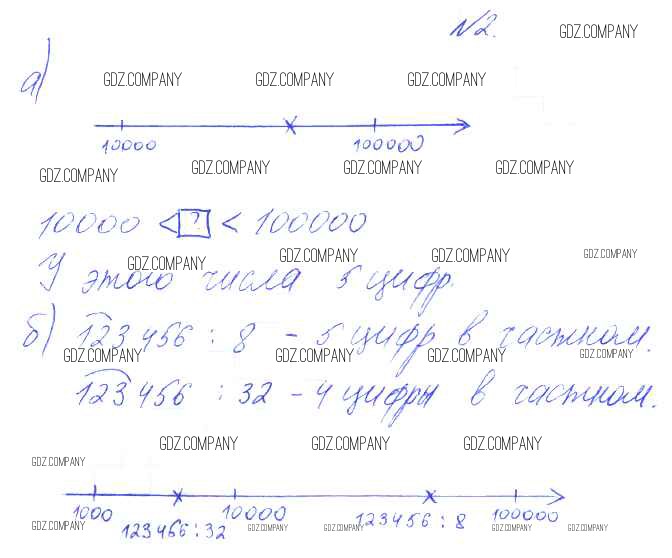 №2. GDZ.COMPANY
а) GDZ.COMPANY GDZ.COMPANY GDZ.COMPANY
10000 100000
GDZ.COMPANY GDZ.COMPANY GDZ.COMPANY GDZ.COMPANY
10000 < ? < 100000
GDZ.COMPANY GDZ.COMPANY GDZ.COMPANY GDZ.COMPANY
У этого числа 5 цифр.
б) 123456 : 8 – 5 цифр в частном.
GDZ.COMPANY GDZ.COMPANY GDZ.COMPANY GDZ.COMPANY
123456 : 32 – 4 цифры в частном.
GDZ.COMPANY GDZ.COMPANY GDZ.COMPANY
GDZ.COMPANY
1000 10000 100000
GDZ.COMPANY 123456:32 GDZ.COMPANY GDZ.COMPANY 123456:8 GDZ.COMPANY GDZ.COMPANY